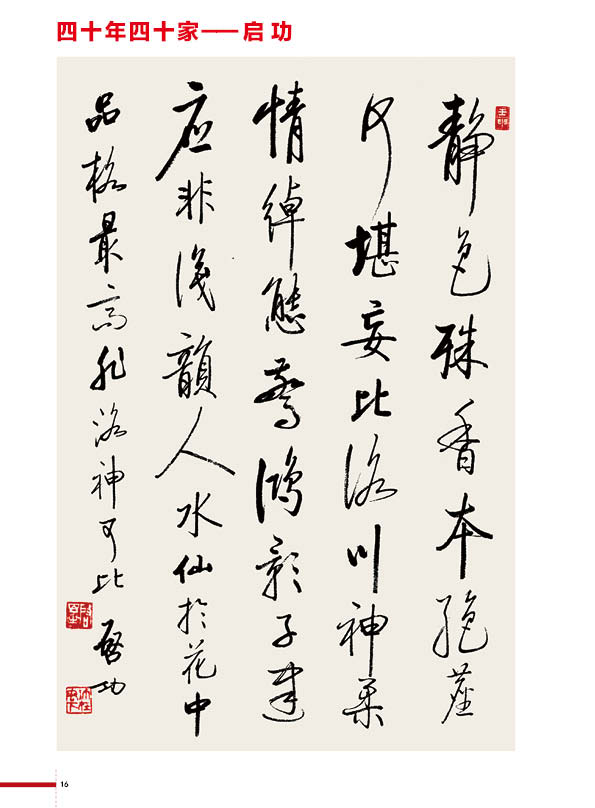 四十年四十家——启功
静色殊香本絶塵
何堪妄比洛川神柔
情綽態驚鴻影子建
应非識韻人水仙於花中
品格最高非洛神可比 啓功
16